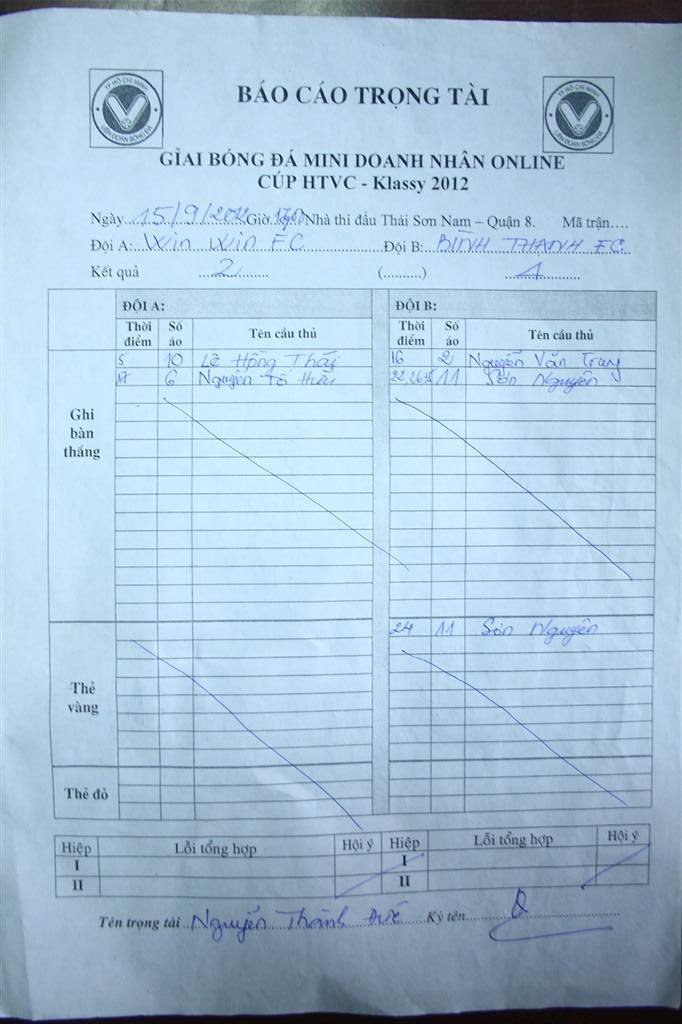 TP HỒ CHÍ MINH
LIÊN ĐOÀN BÓNG ĐÁ
BÁO CÁO TRỌNG TÀI
TP HỒ CHÍ MINH
LIÊN ĐOÀN BÓNG ĐÁ
GIẢI BÓNG ĐÁ MINI DOANH NHÂN ONLINE
CÚP HTVC - Klassy 2012
Ngày 15/9/2012 Giờ Nhà thi đấu Thái Sơn Nam – Quận 8. Mã trận....
Đội A: Win Win FC Đội B: BÌNH THẠNH FC
Kết quả 2 (.........)
ĐỘI A: ĐỘI B:
Thời điểm Số áo Tên cầu thủ Thời điểm Số áo Tên cầu thủ
Ghi bàn thắng
5 10 Lê Hồng Thái 16 2 Nguyễn Văn Trung
17 6 Nguyễn Tố Hữu 11 Sơn Nguyên
Thẻ vàng
24 11 Sơn Nguyên
Thẻ đỏ
Hiệp Lỗi tổng hợp Hội ý Hiệp Lỗi tổng hợp Hội ý
I I
II II
Tên trọng tài Nguyễn Thành Ký tên